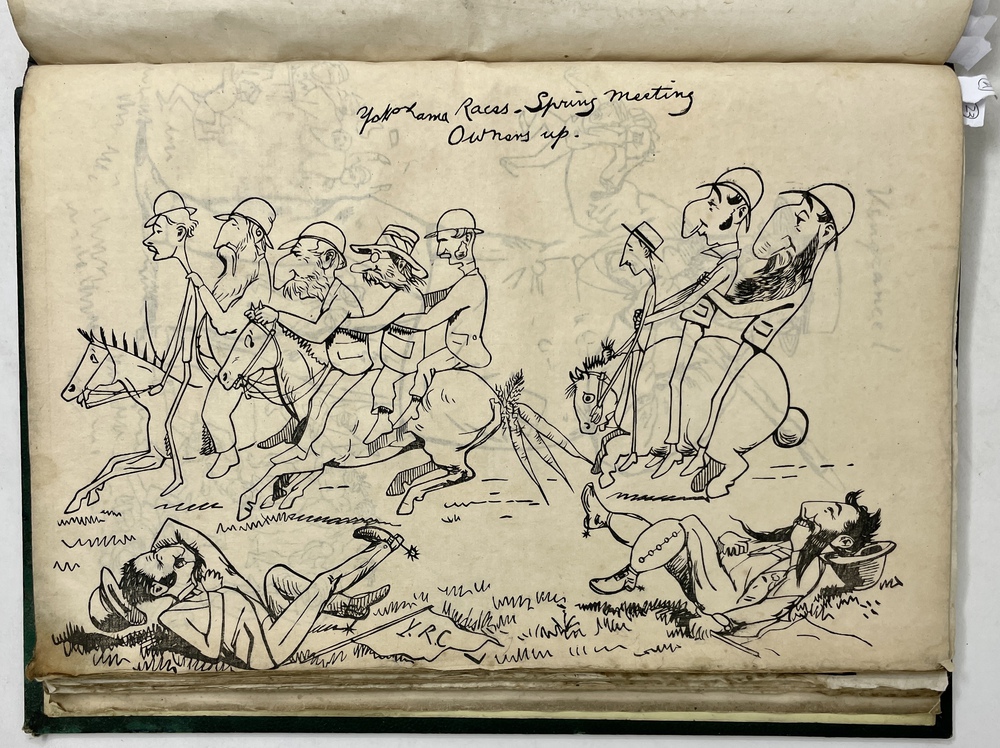 Yokohama Races - Spring Meeting
Owners up -
Y.R.C